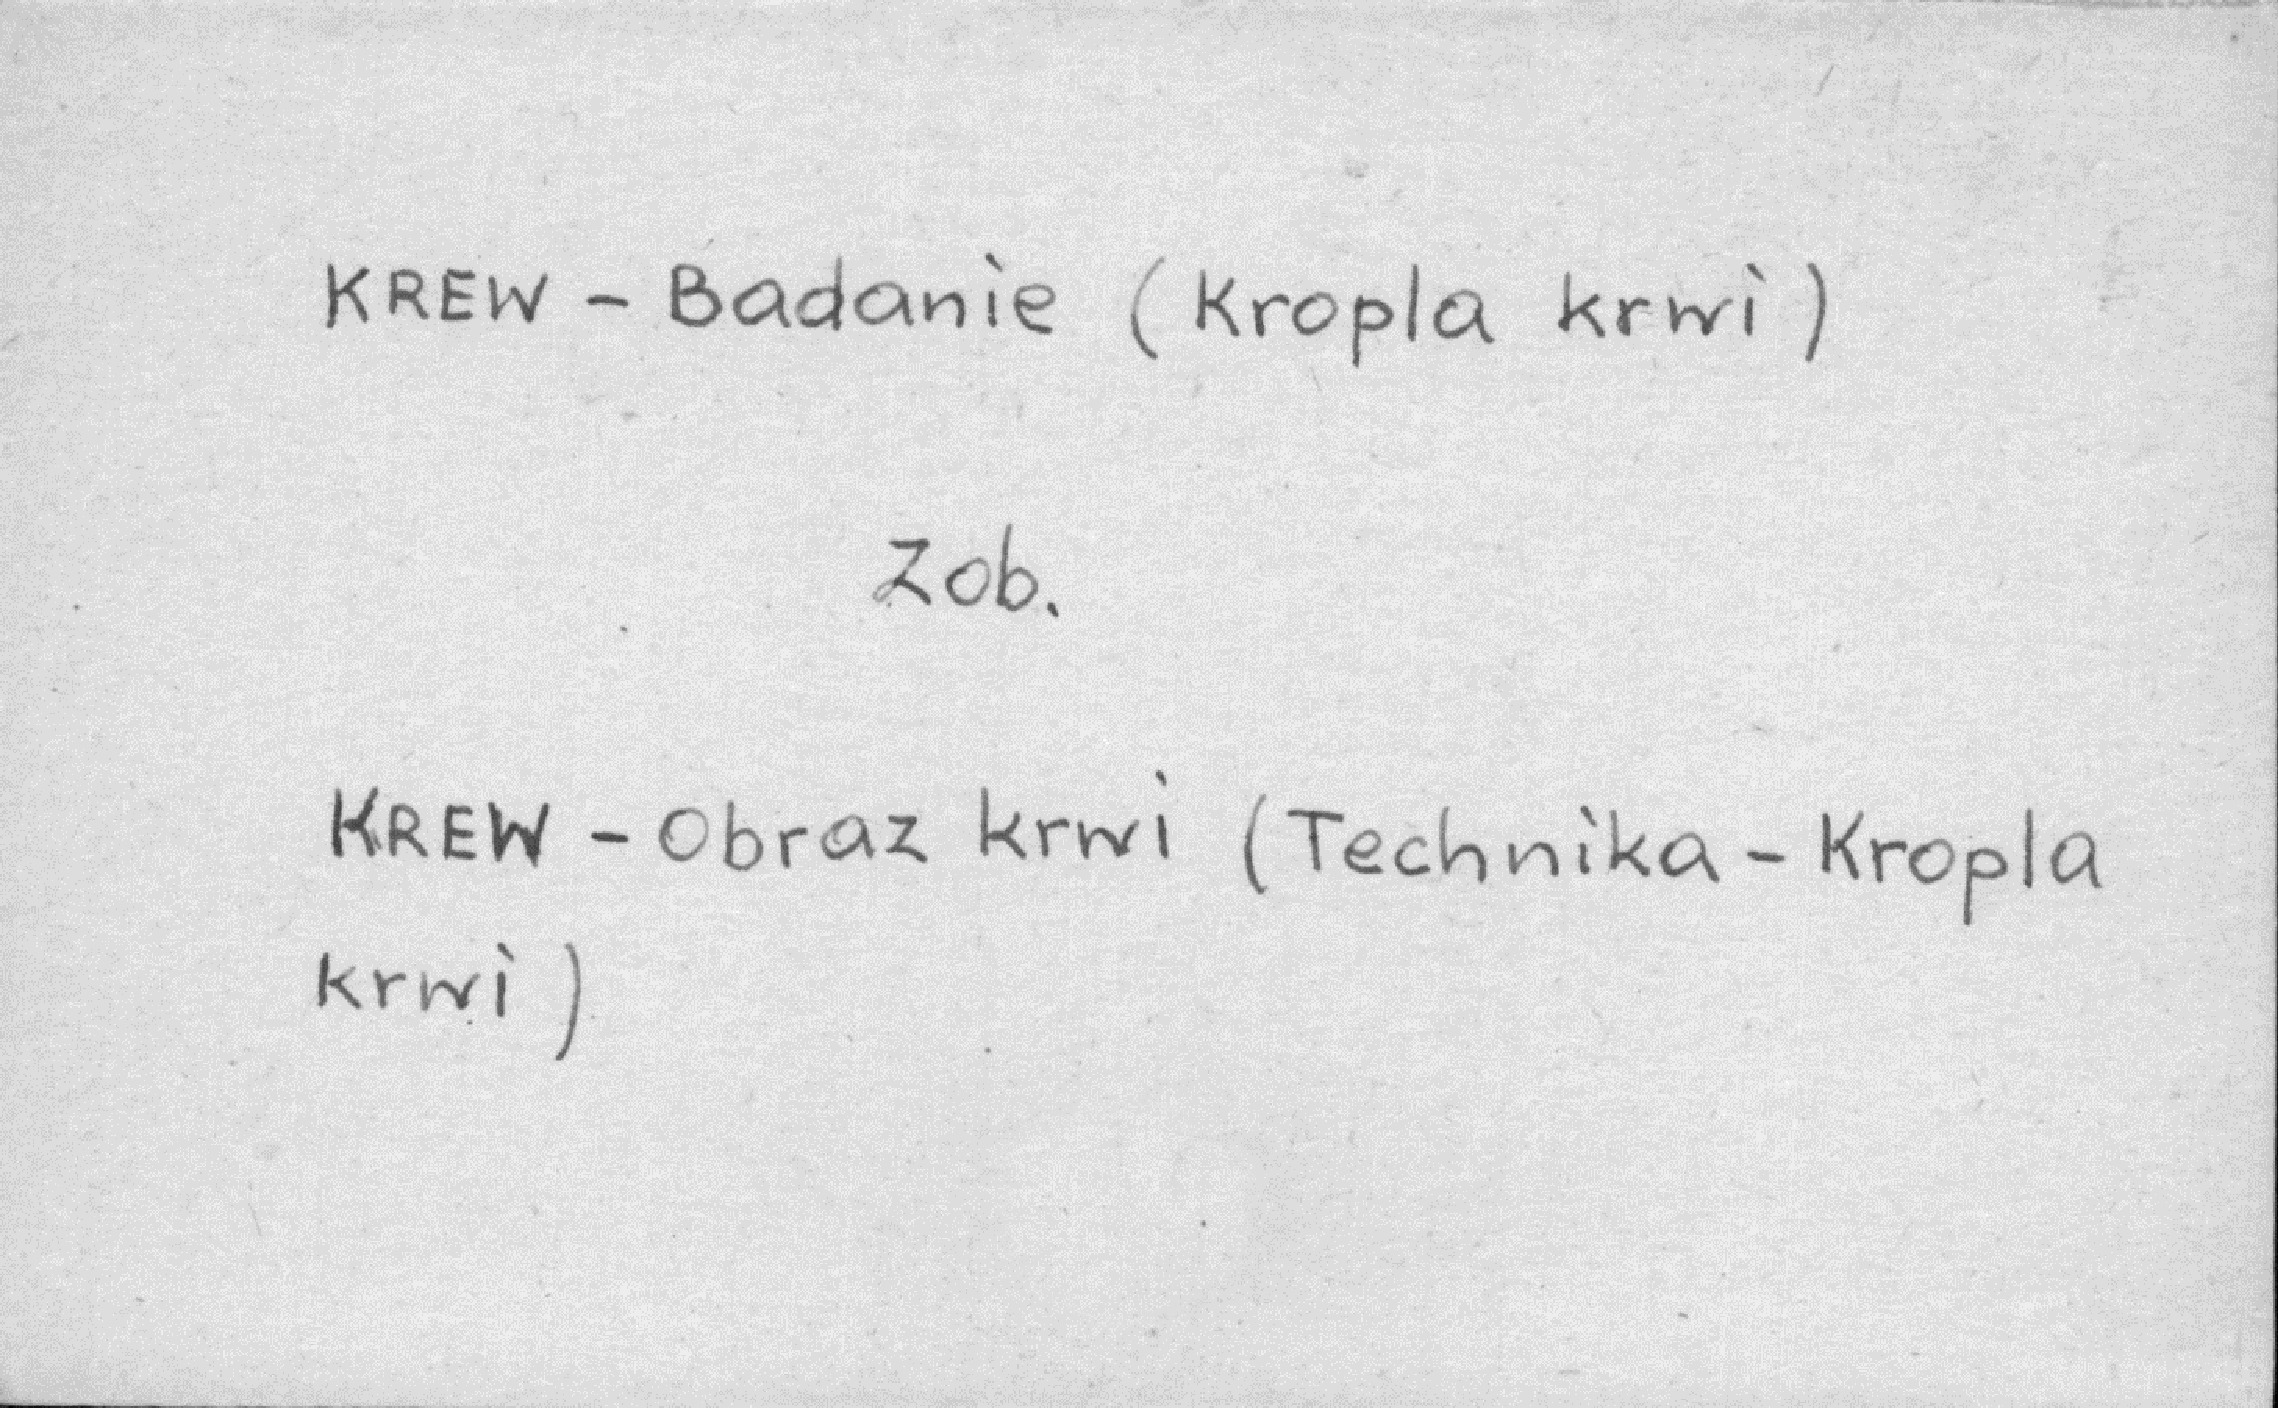 KREW - Badanie (Kropla krwi)
Zob.
KREW - Obraz krwi (Technika - Kropla
krwi)